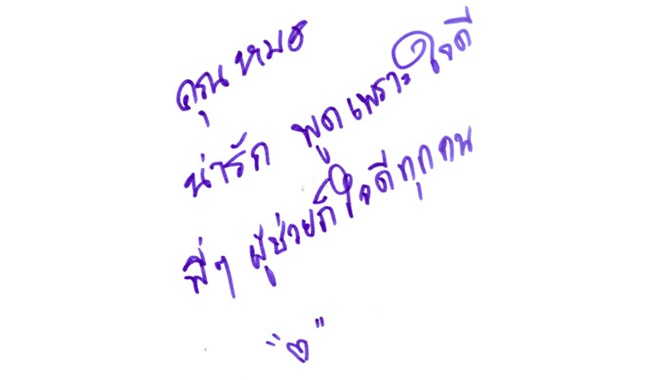 คุณหมอ
น่ารัก พูดเพราะ ใจดี
พี่ๆ ผู้ช่วยก็ใจดีทุกคน
"♡"